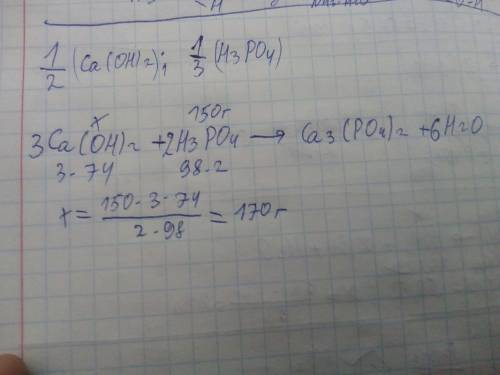 1/2 (Ca(OH)2); 1/3 (H3PO4)
x 150г
3Ca(OH)2 + 2H3PO4 → Ca3(PO4)2 + 6H2O
3·74 98·2
x = 150·3·74 / 2·98 = 170г